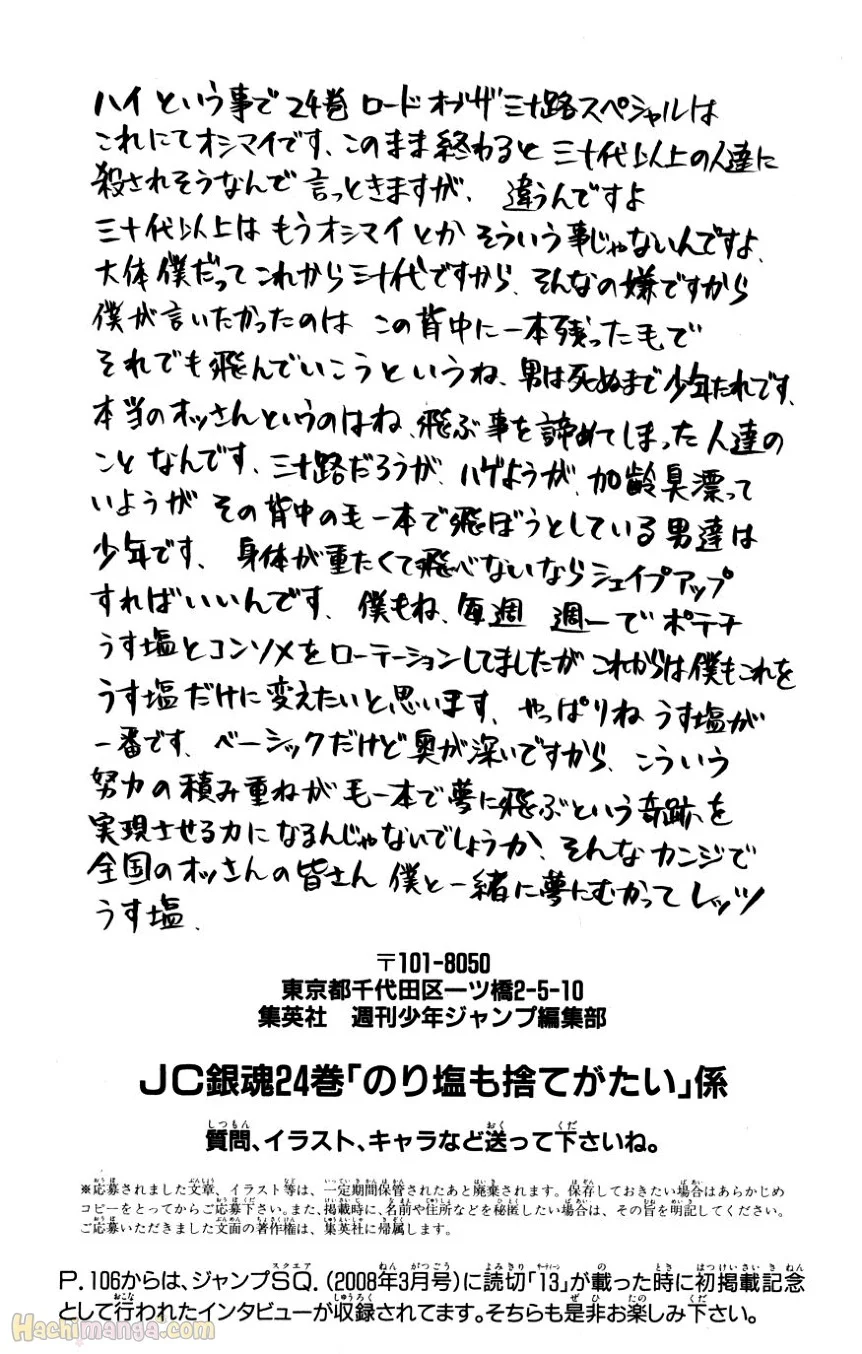 ハイという事で24巻 ロードオブザ三十路スペシャルは
これにてオシマイです、このまま終わると三十代以上の人達に
殺されそうなんで言っときますが、違うんですよ
三十代以上はもうオシマイとかそういう事じゃないんですよ、
大体僕だってこれから三十代ですから、そんなの嫌ですから
僕が言いたかったのは この背中に一本残った毛で
それでも飛んでいこうというね、男は死ぬまで少年たれです、
本当のオッさんというのはね、飛ぶ事を諦めてしまった人達の
ことなんです、三十路だろうが、ハゲようが、加齢臭漂って
いようが その背中の毛一本で飛ぼうとしている男達は
少年です、身体が重たくて飛べないならシェイプアップ
すればいいんです、僕もね、毎週 週一でポテチ
うす塩とコンソメをローテーションしてましたがこれからは僕もこれを
うす塩だけに変えたいと思います、やっぱりねうす塩が
一番です、ベーシックだけど奥が深いですから、こういう
努力の積み重ねが毛一本で夢に飛ぶという奇跡を
実現させる力になるんじゃないでしょうか、そんなカンジで
全国のオッさんの皆さん 僕と一緒に夢にむかってレッツ
うす塩、
〒101-8050
東京都千代田区一ツ橋2-5-10
集英社 週刊少年ジャンプ編集部
JC銀魂24巻「のり塩も捨てがたい」係
質問、イラスト、キャラなど送って下さいね。
※応募されました文章、イラスト等は、一定期間保管されたあと廃棄されます。保存しておきたい場合はあらかじめ
コピーをとってからご応募下さい。また、掲載時に、名前や住所などを秘匿したい場合は、その旨を明記してください。
ご応募いただきました文面の著作権は、集英社に帰属します。
P.106からは、ジャンプSQ.(2008年3月号)に読切「13」が載った時に初掲載記念
として行われたインタビューが収録されてます。そちらも是非お楽しみ下さい。
Hachimanga.com